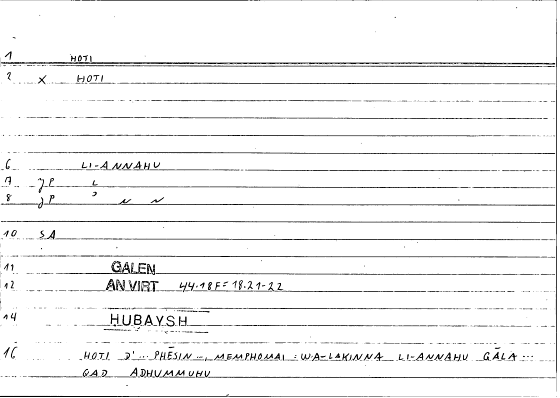 1 HOTI
2 X HOTI
6 LI-ANNAHU
7 JP L
8 JP ' N N
10 SA
11 GALEN
12 AN VIRT 44.18F=18.21-22
14 HUBAYSH
16 HOTI D'... PHĒSIN..., MEMPHOMAI : WA-LAKINNA LI-ANNAHU QĀLA...
QAD ADHUMMUHU